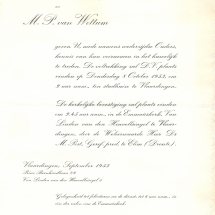 M. P. van Wettum
geven U, mede namens wederzijdse Ouders,
kennis van hun voornemen in het huwelijk
te treden. De voltrekking zal D.V. plaats
vinden op Donderdag 8 October 1953 om
2 uur nam., ten stadhuize te Vlaardingen.
De kerkelijke bevestiging zal plaats vinden
om 2.45 uur nam. in de Emmauskerk, Van
Linden van den Heuvellsingel te Vlaar-
dingen, door de Weleerwaarde Heer Ds
M. Post, Geref. pred. te Elim (Drente).
Vlaardingen, September 1953
Van Linden van den Heuvellsingel
Gelegenheid tot feliciteren na de dienst, tot uur nam., in
een der zalen van de Emmauskerk.